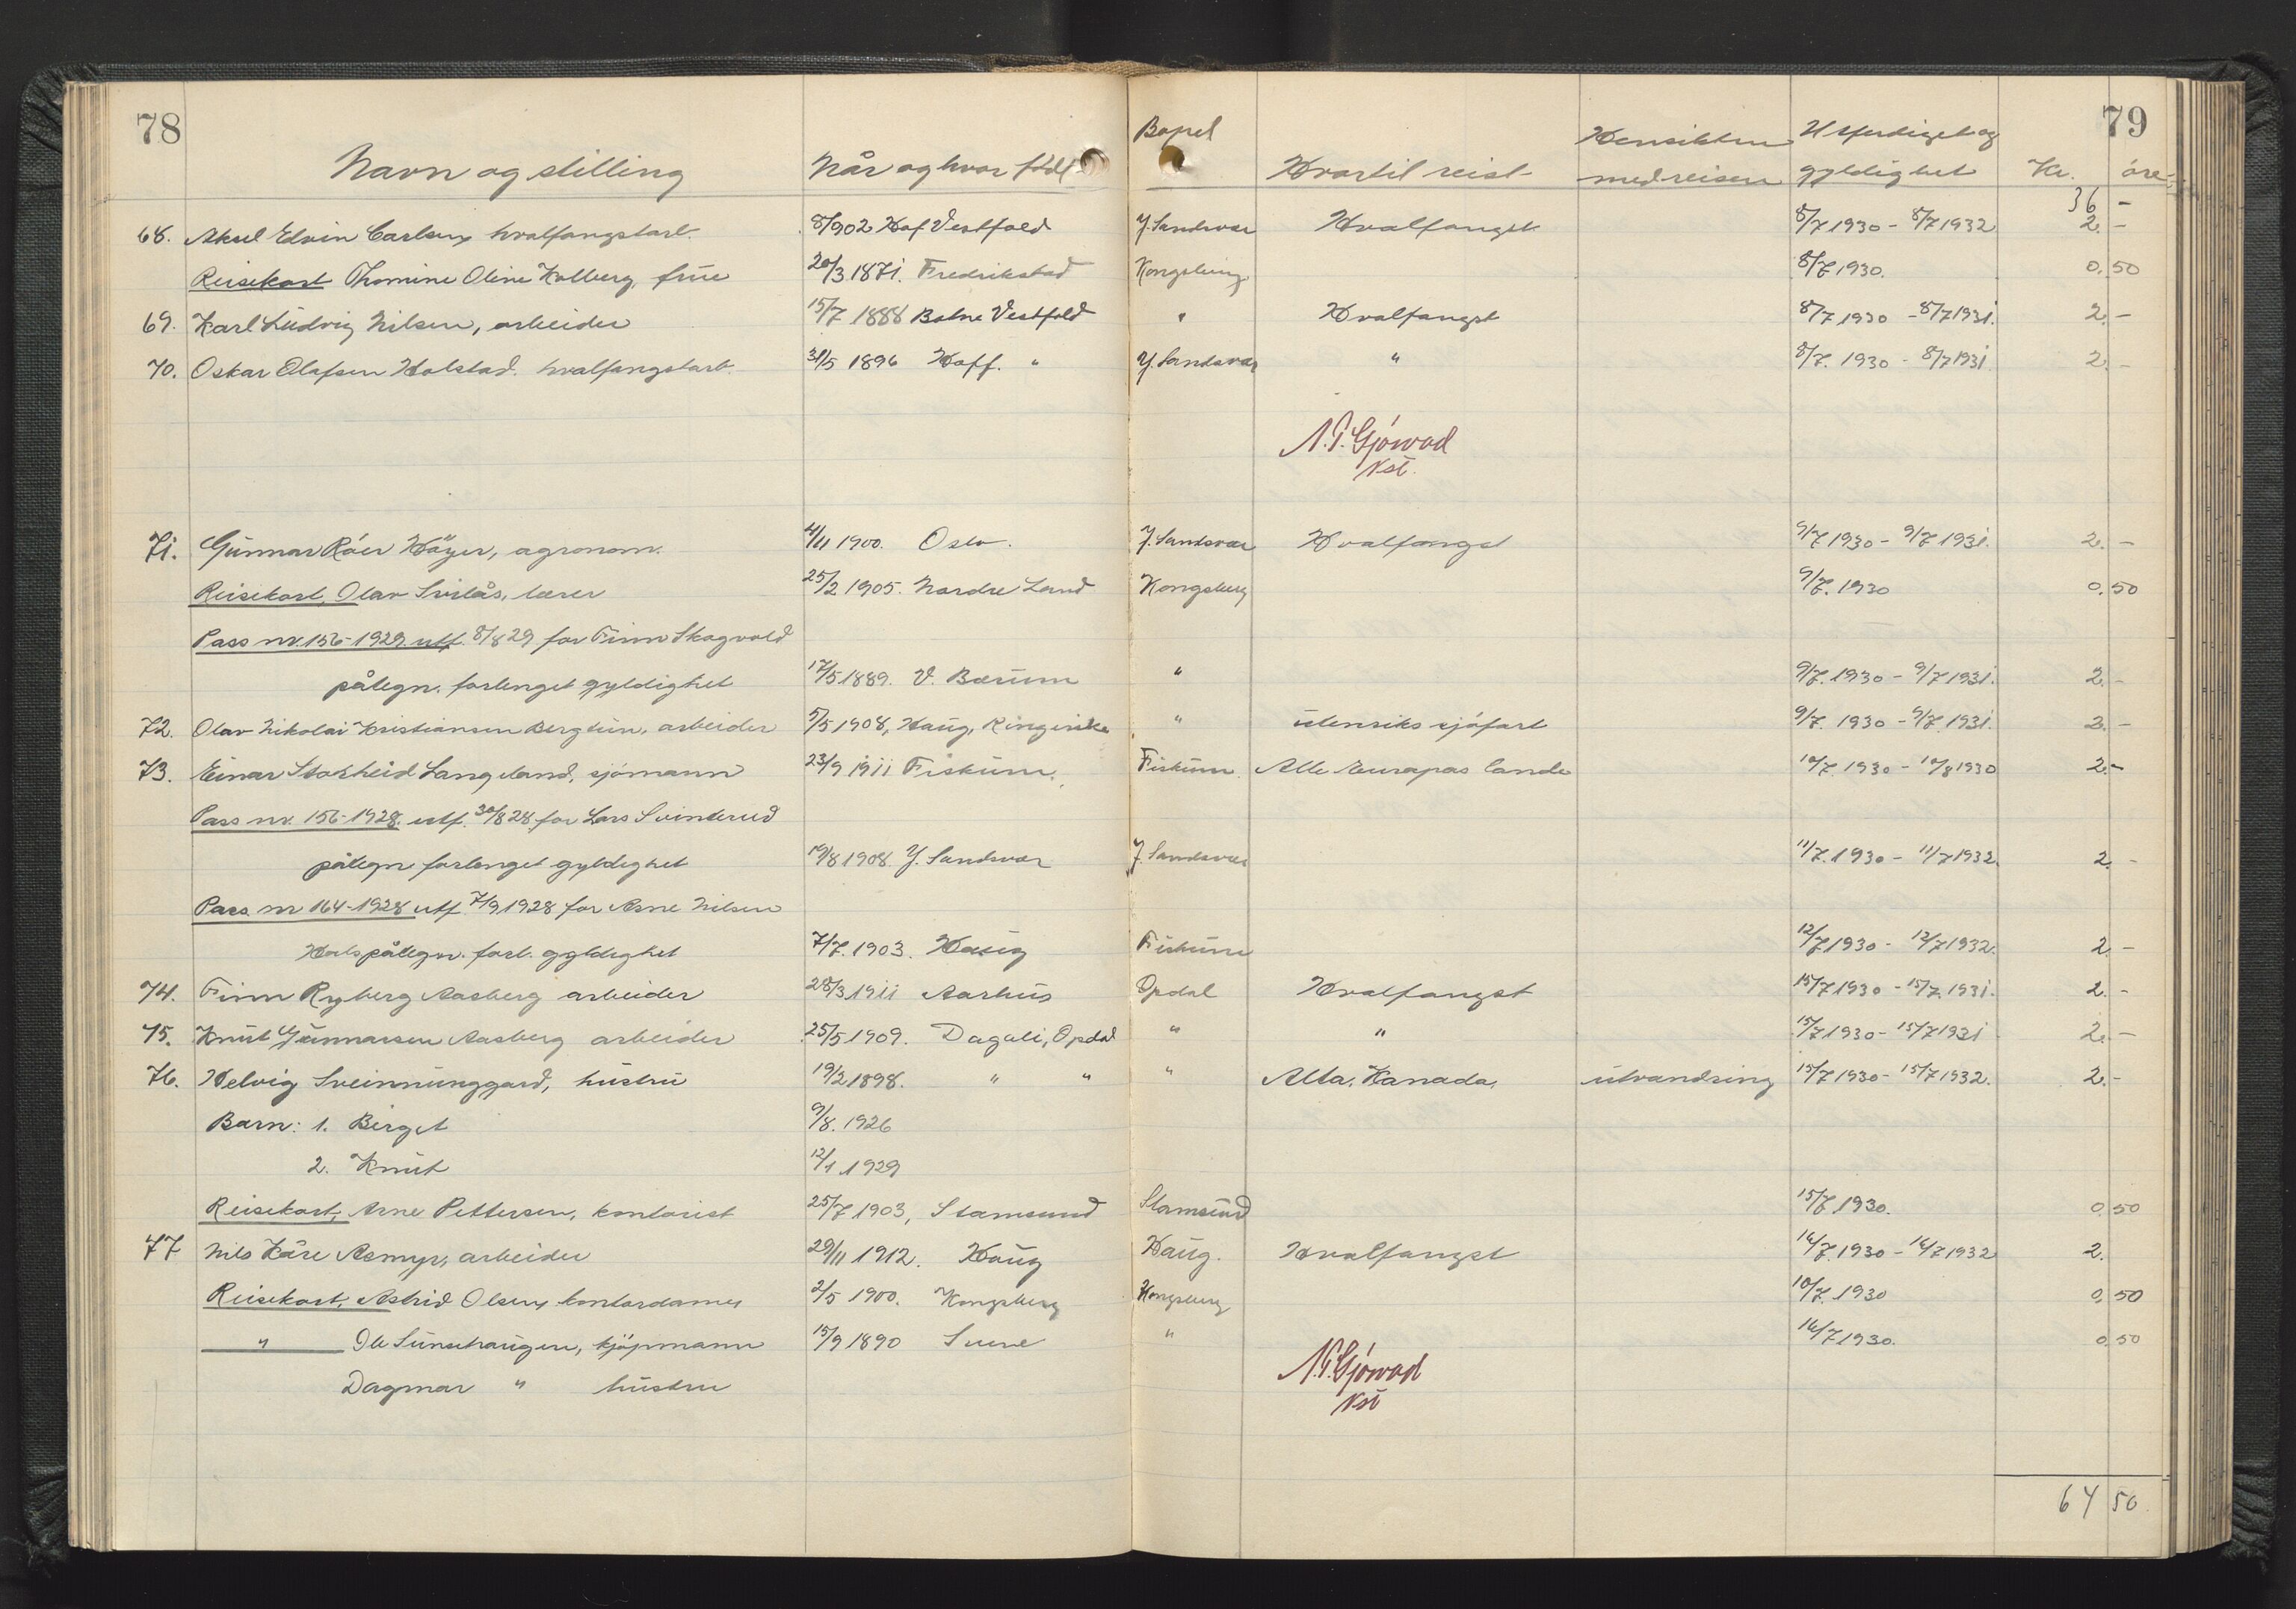 78
79
Navn og stilling Når og hvor født Bopel Hvortil reist Hensikten med reisen Utferdiget og gyldighet Kr. øre
36 -
68. Aksel Edvin Carlsen, hvalfangstarb. 8/902 Hof Vestfold Y. Sandsvær Hvalfangst 8/7 1930 - 8/7 1932 2. -
Reisekort Thomine Oline Holberg, frue 20/3 1871. Fredrikstad Kongsberg 8/7 1930. 0. 50
69. Karl Ludvig Nilsen, arbeider 15/7 1888 Botne Vestfold " Hvalfangst 8/7 1930 - 8/7 1931. 2. -
70. Oskar Olafsen Holstad. hvalfangstarb. 31/5 1896 Hoff. " Y. Sandsvær " 8/7. 1930 - 8/7 1931 2. -
N.P. Gjówad
kst.
71. Gunnar Róer Höyer, agronom. 4/11 1900. Oslo. Y. Sandsvær Hvalfangst 9/7 1930 - 9/7 1931. 2. -
Reisekort, Olav Svilås, lærer 25/2 1905. Nordre Land Kongsberg 9/7. 1930 0. 50
Pass nr. 156-1929 utf. 8/8 29 for Finn Skogvold
påtegn. forlenget gyldighet 17/5 1889. V. Bærum " 9/7. 1930 - 9/7 1931. 2. -
72. Olav Nikolai Kristiansen Bergtun, arbeider 5/5 1908, Haug, Ringerike " utenriks sjófart 9/7. 1930 - 9/7. 1931. 2. -
73. Einar Stokheid Langeland, sjómann 23/9 1911 Fiskum. Fiskum. Alle Europas lande 10/7. 1930 - 10/8 1930 2. -
Pass nr. 156-1928. utf. 30/8 28 for Lars Svinterud
påtegn forlenget gyldighet 19/8 1908 Y. Sandsvær Y. Sandsvær 11/7. 1930 - 11/7 1932. 2. -
Pass nr 164-1928 utf 7/9 1928 for Arne Nilsen
Hals påtegn. forl. gyldighet 7/7. 1903. Haug Fiskum 12/7 1930 - 12/7 1932. 2 -
74. Finn Ryberg Aasberg arbeider 28/3 1911 Aarhus Opdal Hvalfangst 15/7 1930 - 15/7. 1931. 2. -
75. Knut Gunnarsen Aasberg arbeider 25/5 1909. Dagali, Opdal " " 15/7 1930 - 15/7 1931 2. -
76. Helvig Sveinnunggard, hustru 19/2 1898. " " " Alta. Kanada. utvandring 15/7 1930 - 15/7 1932. 2. -
Barn: 1. Birget 9/8. 1926
2. Knut 12/1 1929
Reisekort, Arne Pettersen, kontorist 25/7 1903, Stamsund Stamsund 15/7 1930. 0. 50
77 Nils Kåre Asmyr, arbeider 29/11 1912. Haug Haug. Hvalfangst 16/7. 1930 - 16/7 1932 2.
Reisekort, Astrid Olsen, kontordame 2/5 1900. Kongsberg Kongsberg 10/7. 1930 0. 50
" Ole Sunehaugen, kjöpmann 15/9 1890 Svene " 16/7 1930. 0. 50
Dagmar " hustru
N.P. Gjówad
kst
64 50